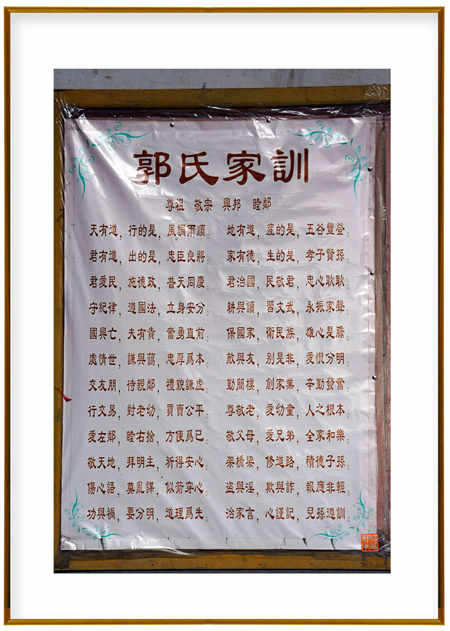 郭氏家訓
尊祖 敬宗 興邦 睦鄰
天有道，行的是，風調雨順，地有道，產的是，五谷豐登，
君有道，出的是，忠臣良將，家有德，生的是，孝子賢孫，
君愛民，施德政，普天同慶，君治國，民敬君，忠心耿耿，
守紀律，遵國法，立身安分，耕與讀，習文武，永振家聲，
國興亡，夫有責，當勇直前，保國家，衛民族，雄心是，
處情世，謙與藹，忠厚爲本，敵與友，別是非，愛恨分明，
交友朋，待親鄰，禮貌謙虛，勤簡樸，創家業，辛勤發富，
行交易，對老幼，買賣公平，尊敬老，愛幼童，人之根本，
愛左鄰，睦右舍，方便爲已，敬父母，愛兄弟，全家和樂，
敬天地，拜明主，祈得安心，架橋梁，修道路，積德子孫，
傷心語，莫亂講，似箭穿心，盜與淫，欺與詐，報應非輕，
功與禍，要分明，道理爲先，治家言，心謹記，兒孫遵訓，